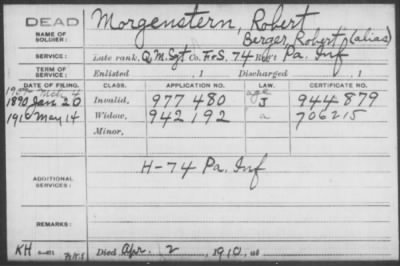 DEAD Morgenstern, Robert
NAME OF SOLDIER: Berger, Robert (alias)
SERVICE: Late rank, Q. M. Sgt Co. F&S, 74 Reg't Pa. Inf
TERM OF SERVICE: Enlisted , 1 Discharged , 1
DATE OF FILING. CLASS. APPLICATION NO. LAW. CERTIFICATE NO.
age
1890 Jan 20 Invalid, 977 480 J 944 879
1910 May 14 Widow, 942 192 a 706215
Minor,
H-74 Pa. Inf
ADDITIONAL SERVICES:
REMARKS:
KH Died Apr. 2, 1910, at